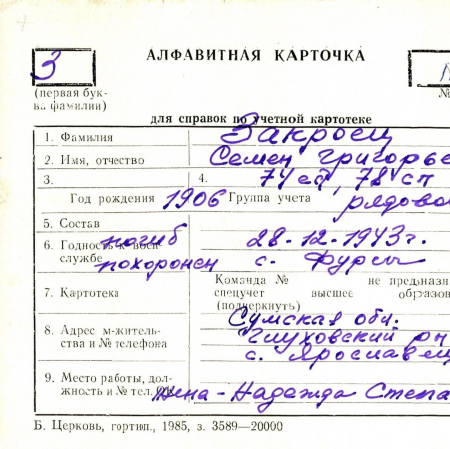 З
АЛФАВИТНАЯ КАРТОЧКА
(первая бук-
ва фамилии)
№
для справок по учетной картотеке
1. Фамилия Закроец
2. Имя, отчество Семен Григорье
3. 4. 74 сд, 78 сп
Год рождения 1906 Группа учета рядово
5. Состав
6. Годность к воен. службе погиб 28.12.1943г.
похоронен с. Фурсы
7. Картотека Команда № не предназн
спецучет высшее образов
(подчеркнуть)
Сумская обл.
8. Адрес м-житель- Глуховский рн
ства и № телефона с. Ярославец
9. Место работы, дол-
жность и № тел. жена - Надежда Степа
Б. Церковь, гортип., 1985, з. 3589—20000